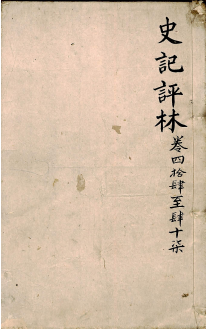 史記評林
卷四拾肆至肆十柒